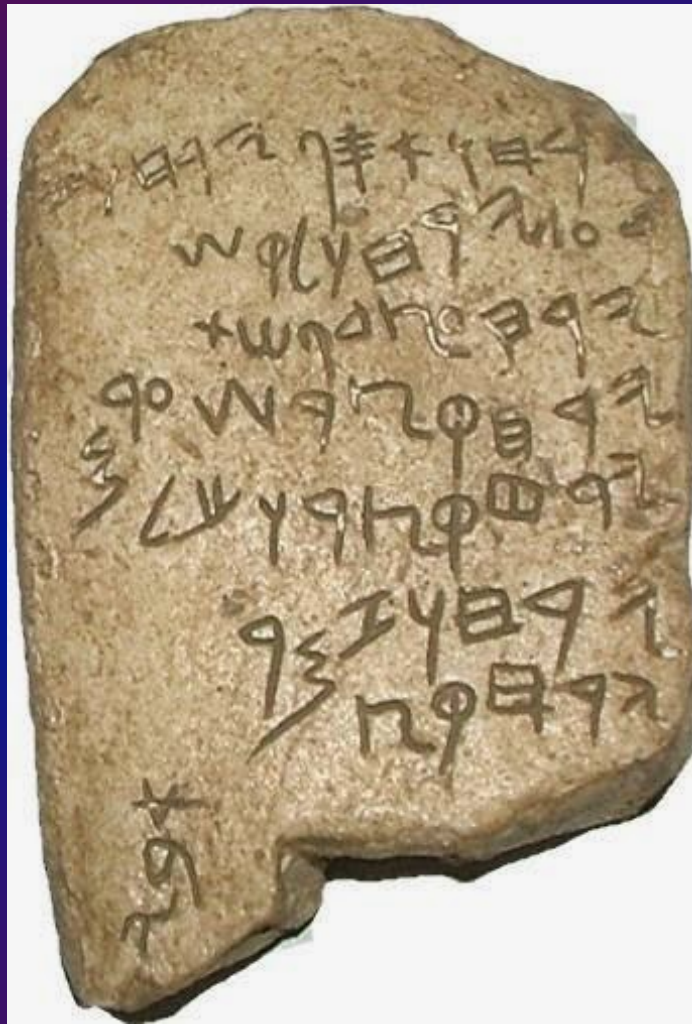 𐤉𐤓𐤇𐤅𐤀𐤎𐤐 𐤉𐤓𐤇𐤅𐤆
𐤓𐤏𐤉𐤓𐤇𐤅𐤋𐤒𐤔
𐤉𐤓𐤇𐤏𐤑𐤃𐤐𐤔𐤕
𐤉𐤓𐤇𐤒𐤑𐤓𐤔𐤏𐤓𐤌
𐤉𐤓𐤇𐤒𐤑𐤓𐤅𐤊𐤋
𐤉𐤓𐤇𐤅𐤆𐤌𐤓
𐤉𐤓𐤇𐤒𐤑
𐤀𐤁𐤉